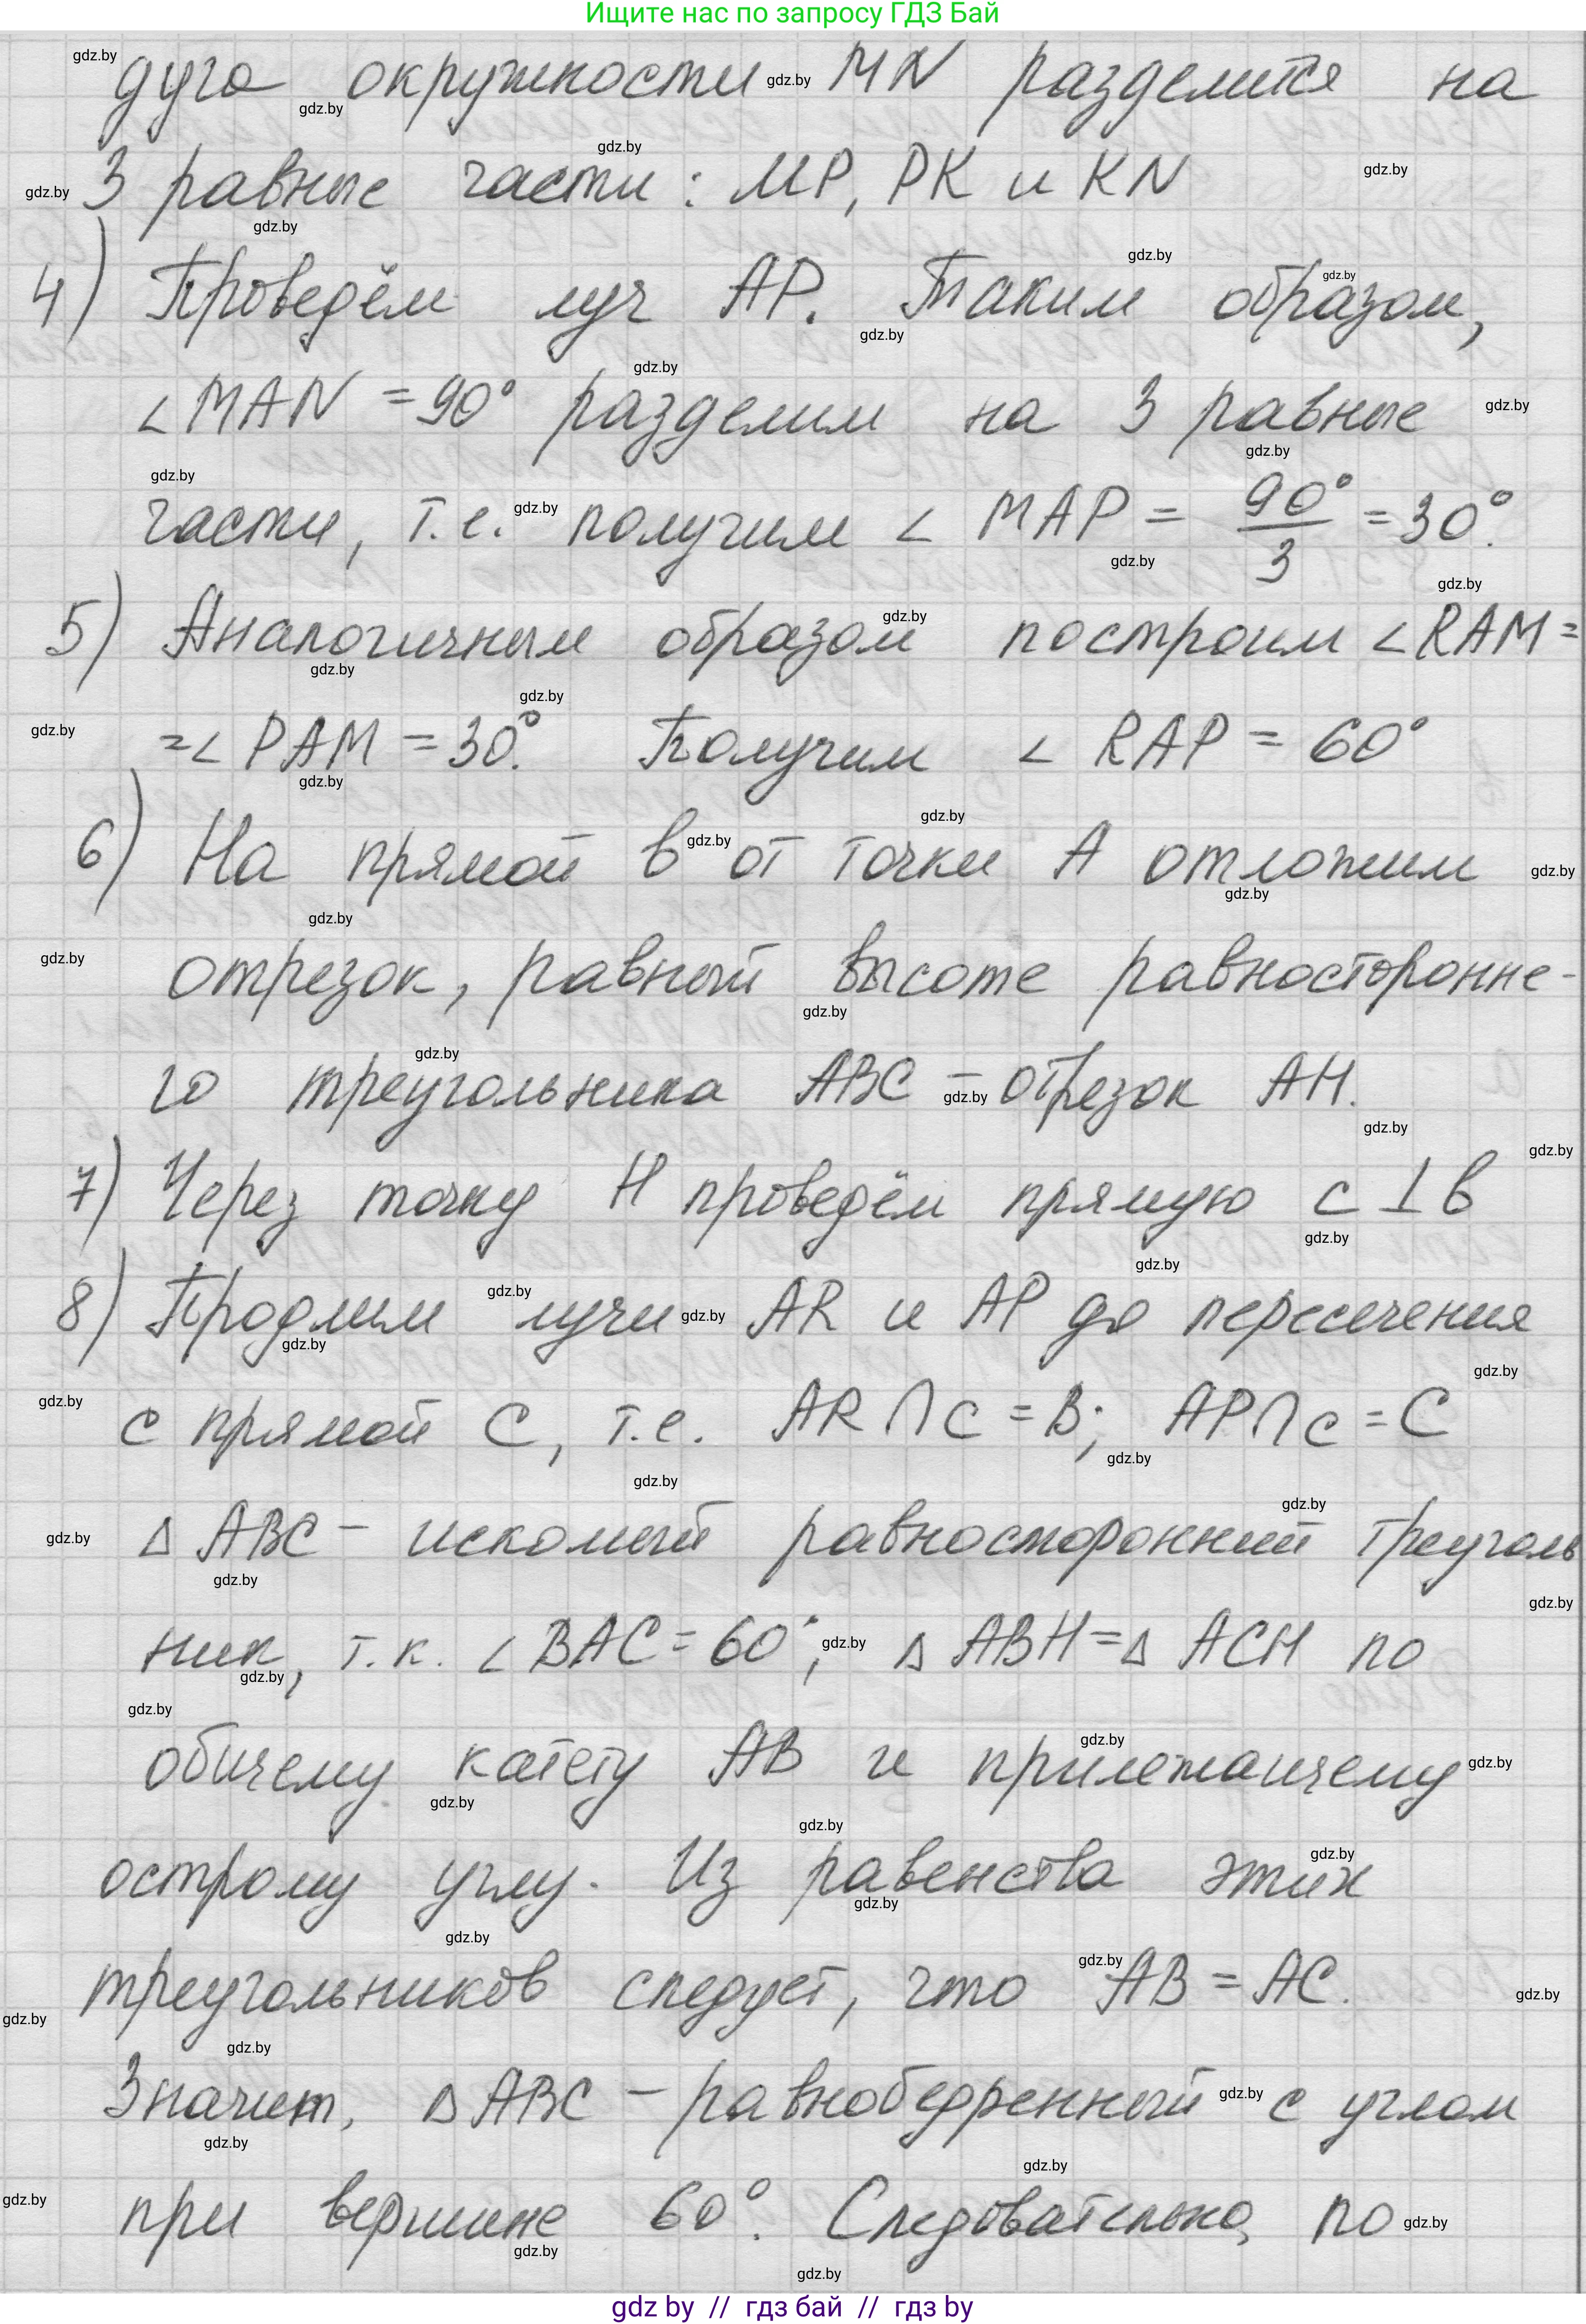 Ищите нас по запросу ГДЗ Бай
дуга окружности MN разделится на
3 равные части: MP, PK и KN
4) Проведём луч AP. Таким образом,
∠MAN = 90° разделим на 3 равные
части, т.е. получим ∠ MAP = 90°/3 = 30°.
5) Аналогичным образом построим ∠RAM =
=∠ PAM = 30°. Получим ∠ RAP = 60°
6) На прямой b от точки A отложим
отрезок, равный высоте равносторонне-
го треугольника ABC – отрезок AH.
7) Через точку H проведём прямую c ⊥ b
8) Продлим лучи AR и AP до пересечения
с прямой C, т.е. AR ∩ c = B; AP ∩ c = C
△ ABC – искомый равносторонний треуголь
ник, т.к. ∠ BAC = 60°; △ ABH = △ ACH по
общему катету AB и прилежащему
острому углу. Из равенства этих
треугольников следует, что AB = AC.
Значит, △ ABC – равнобедренный с углом
при вершине 60°. Следовательно, по
gdz by // гдз бай // гдз by